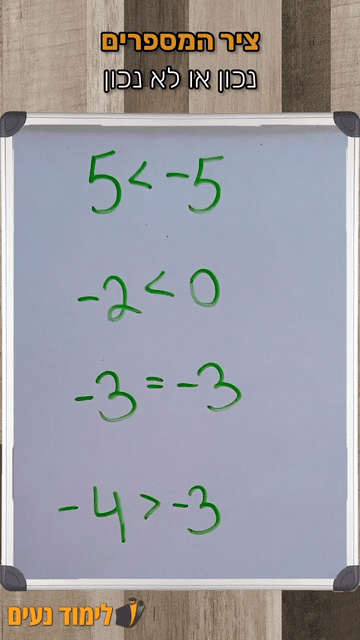 ציר המספרים
נכון או לא נכון
5 < -5
-2 < 0
-3 = -3
-4 > -3
לימוד נעים